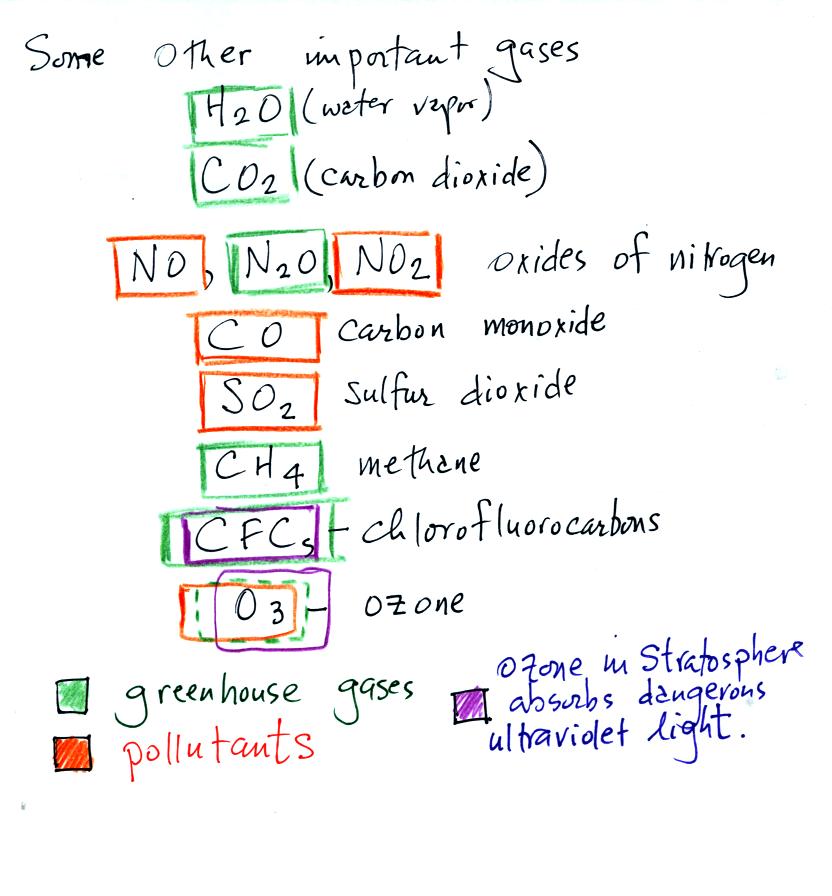 Some other important gases
H2O (water vapor)
CO2 (carbon dioxide)
NO, N2O, NO2 oxides of nitrogen
CO carbon monoxide
SO2 sulfur dioxide
CH4 methane
CFCs - chlorofluorocarbons
O3 - ozone
greenhouse gases
pollutants
ozone in stratosphere
absorbs dangerous
ultraviolet light.